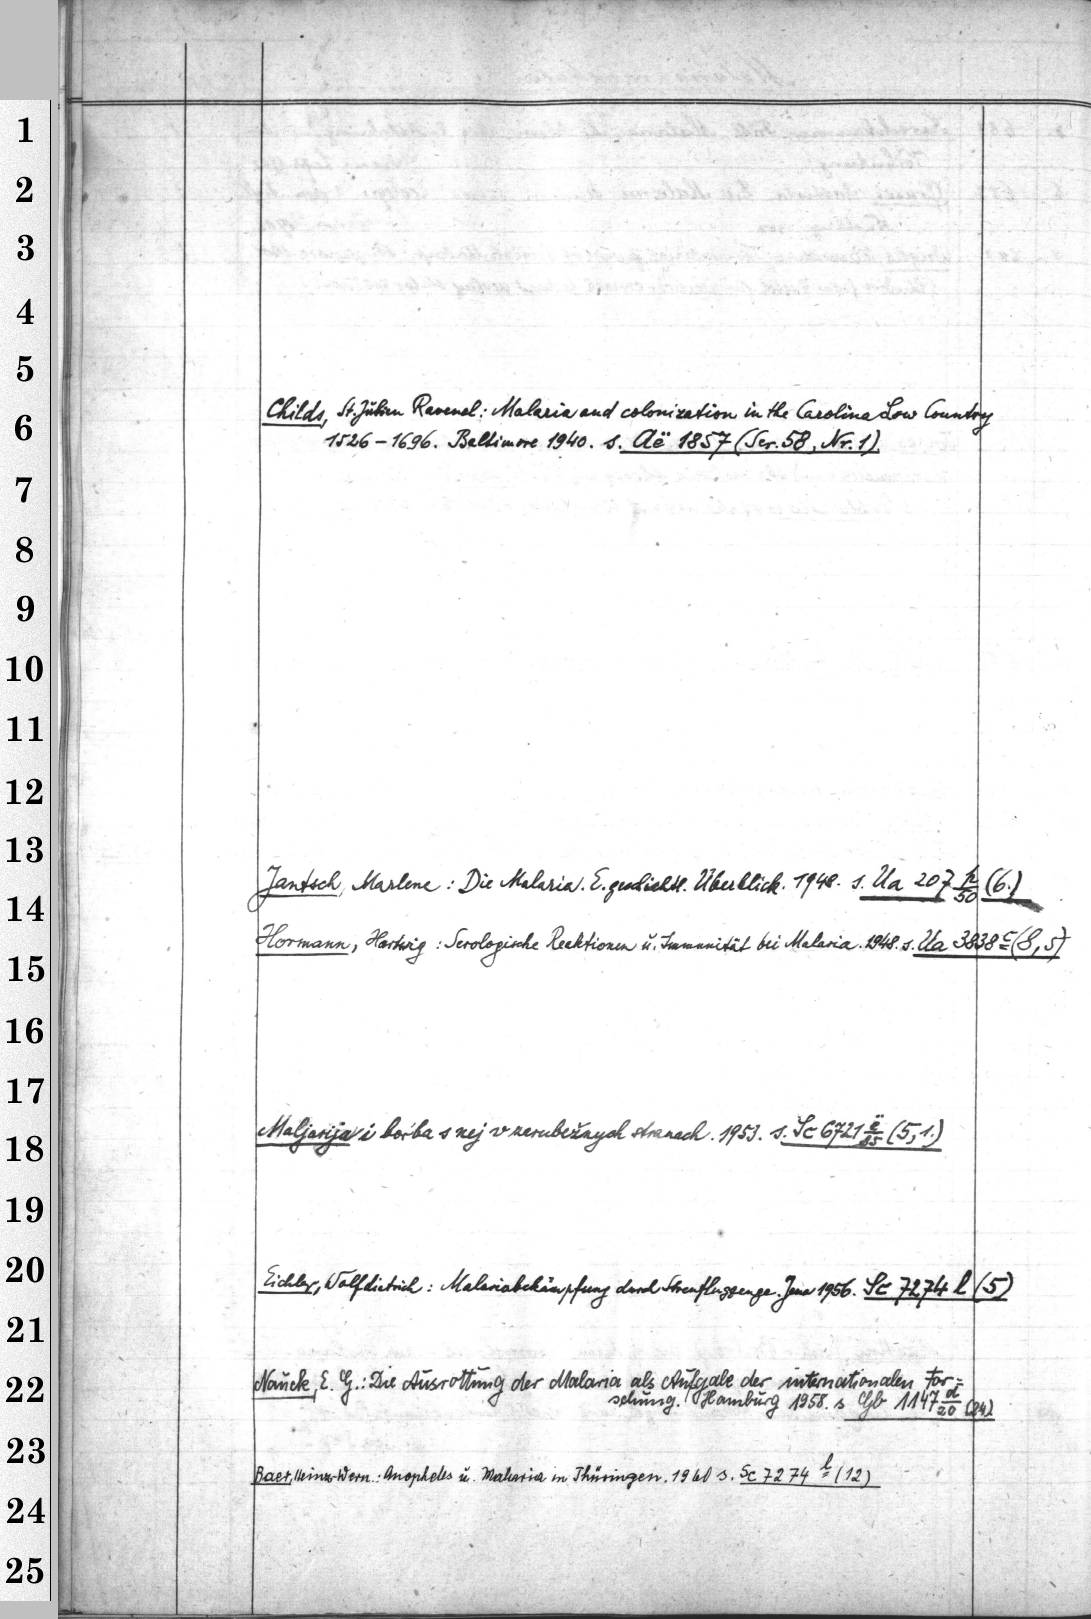 1
2
3
4
5
Childs, St. Julien Ravenel: Malaria and colonization in the Carolina Low Country
6
1526–1696. Baltimore 1940. s. Aë 1857 (Ser. 58, Nr. 1).
7
8
9
10
11
12
13
Jantsch, Marlene: Die Malaria. E. geschichtl. Überblick. 1948. s. Ua 207 h/50 (6.)
14
Hormann, Hartwig: Serologische Reaktionen u. Immunität bei Malaria. 1948. s. Ua 3838 c (8,5)
15
16
17
Maljarija i bor'ba s nej v zarubežnych stranach. 1953. s. Sc 6721 ë/35 (5,1.)
18
19
20
Eichler, Wolfdietrich: Malariabekämpfung durch Streuflugzeuge. Jena 1956. Sc 7274 l (5)
21
Nauck, E. G.: Die Ausrottung der Malaria als Aufgabe der internationalen For=
22
schung. Hamburg 1958. s Gb 1147 d/20 (24)
23
Baer, Heinz-Wern.: Anopheles u. Malaria in Thüringen. 1960 s. Sc 7274 l (12)
24
25